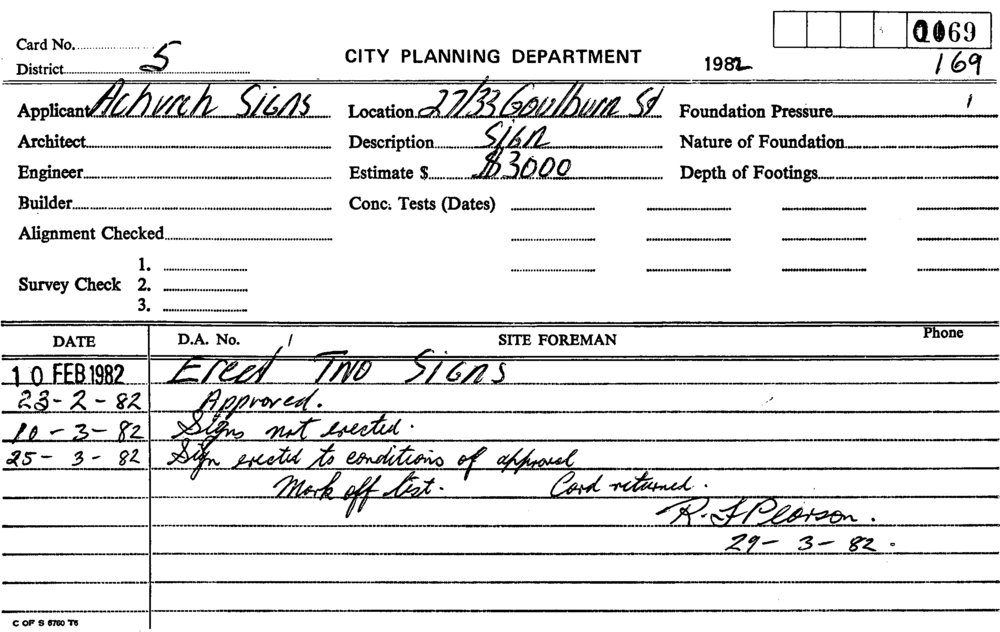 0069
Card No.
District 5
CITY PLANNING DEPARTMENT
1982
169
Applicant Achurch Signs
Location 27/33 Goulburn St
Foundation Pressure
Architect
Description Sign
Nature of Foundation
Engineer
Estimate $ $3000
Depth of Footings
Builder
Conc. Tests (Dates)
Alignment Checked
Survey Check
1.
2.
3.
DATE
D.A. No. /
SITE FOREMAN
Phone
10 FEB 1982 Erect Two Signs
23-2-82 Approved.
10-3-82 Signs not erected.
25-3-82 Sign erected to conditions of approval
Mark off list. Card returned.
R. F Pearson.
29-3-82.
C OF S 6760 T6